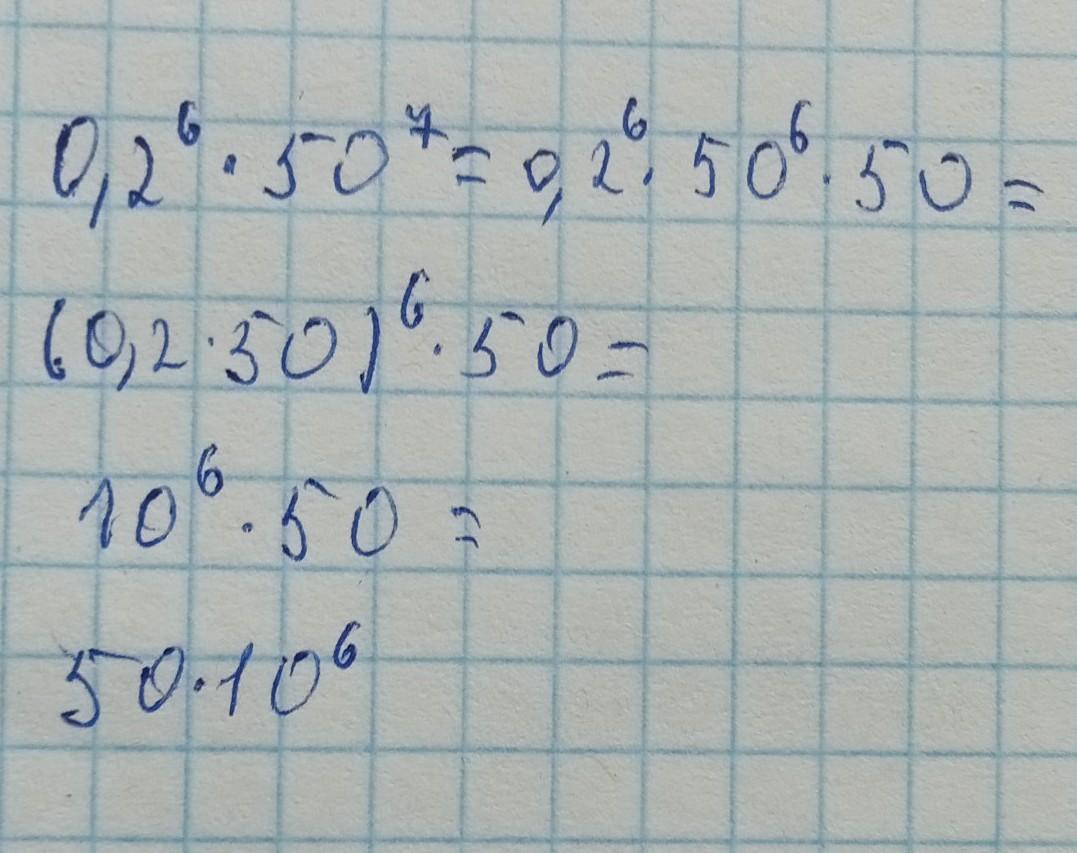 0,2⁶ · 50⁷ = 0,2⁶ · 50⁶ · 50 =
(0,2 · 50)⁶ · 50 =
10⁶ · 50 =
50 · 10⁶